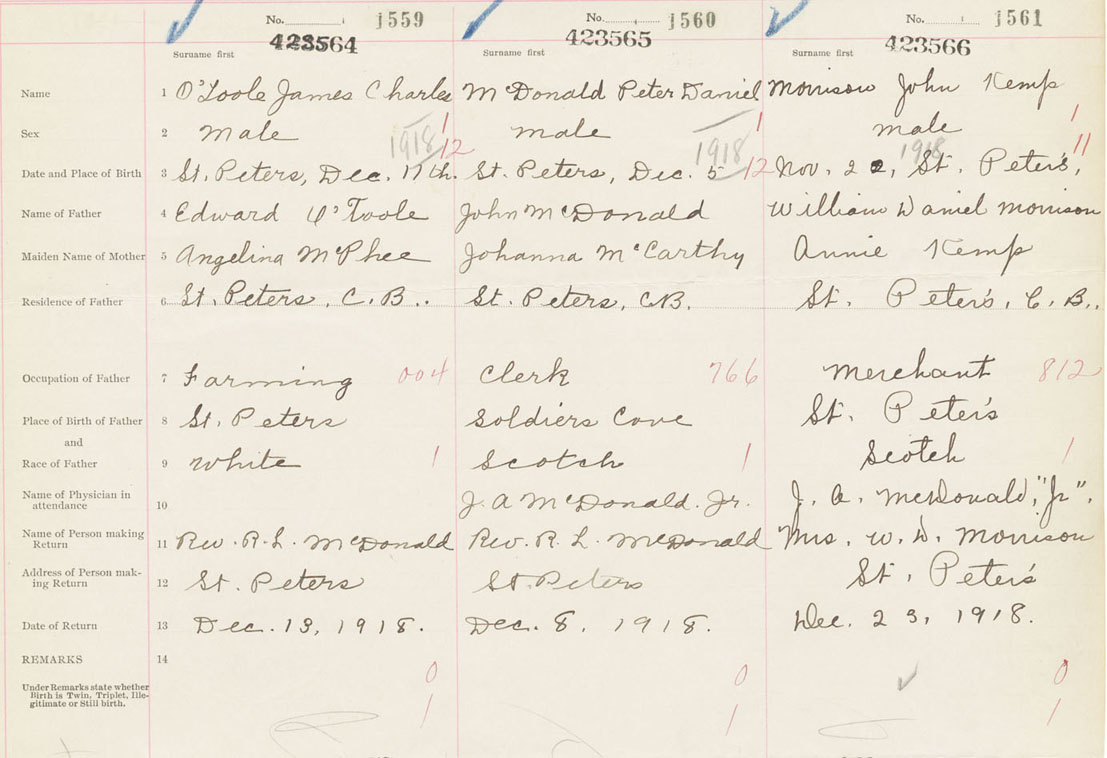 No. 1559 No. 1560 No. 1561
423564 423565 423566
Surname first Surname first Surname first
Name 1 O'Toole James Charles McDonald Peter Daniel Morrison John Kemp
Sex 2 Male 1 male 1 male 1
1918 12 1918 12 1918 11
Date and Place of Birth 3 St. Peters, Dec. 17th. St. Peters, Dec. 5 Nov. 22, St. Peter's,
Name of Father 4 Edward O'Toole John McDonald William Daniel Morrison
Maiden Name of Mother 5 Angelina McPhee Johanna McCarthy Annie Kemp
Residence of Father 6 St. Peters, C.B.. St. Peters, C.B. St. Peter's, C. B..
Occupation of Father 7 Farming 004 Clerk 766 Merchant 812
Place of Birth of Father 8 St. Peters Soldiers Cove St. Peter's
and
Race of Father 9 White 1 Scotch 1 Scotch 1
Name of Physician in
attendance 10 J. A McDonald. Jr. J. A. McDonald, "Jr".
Name of Person making
Return 11 Rev. R. L. McDonald Rev. R. L. McDonald Mrs. W. D. Morrison
Address of Person mak-
ing Return 12 St. Peters St. Peters St. Peter's
Date of Return 13 Dec. 13, 1918. Dec. 8, 1918. Dec. 23, 1918.
REMARKS 14
0 0 0
Under Remarks state whether
Birth is Twin, Triplet, Ille-
gitimate or Still birth.
1 1 1